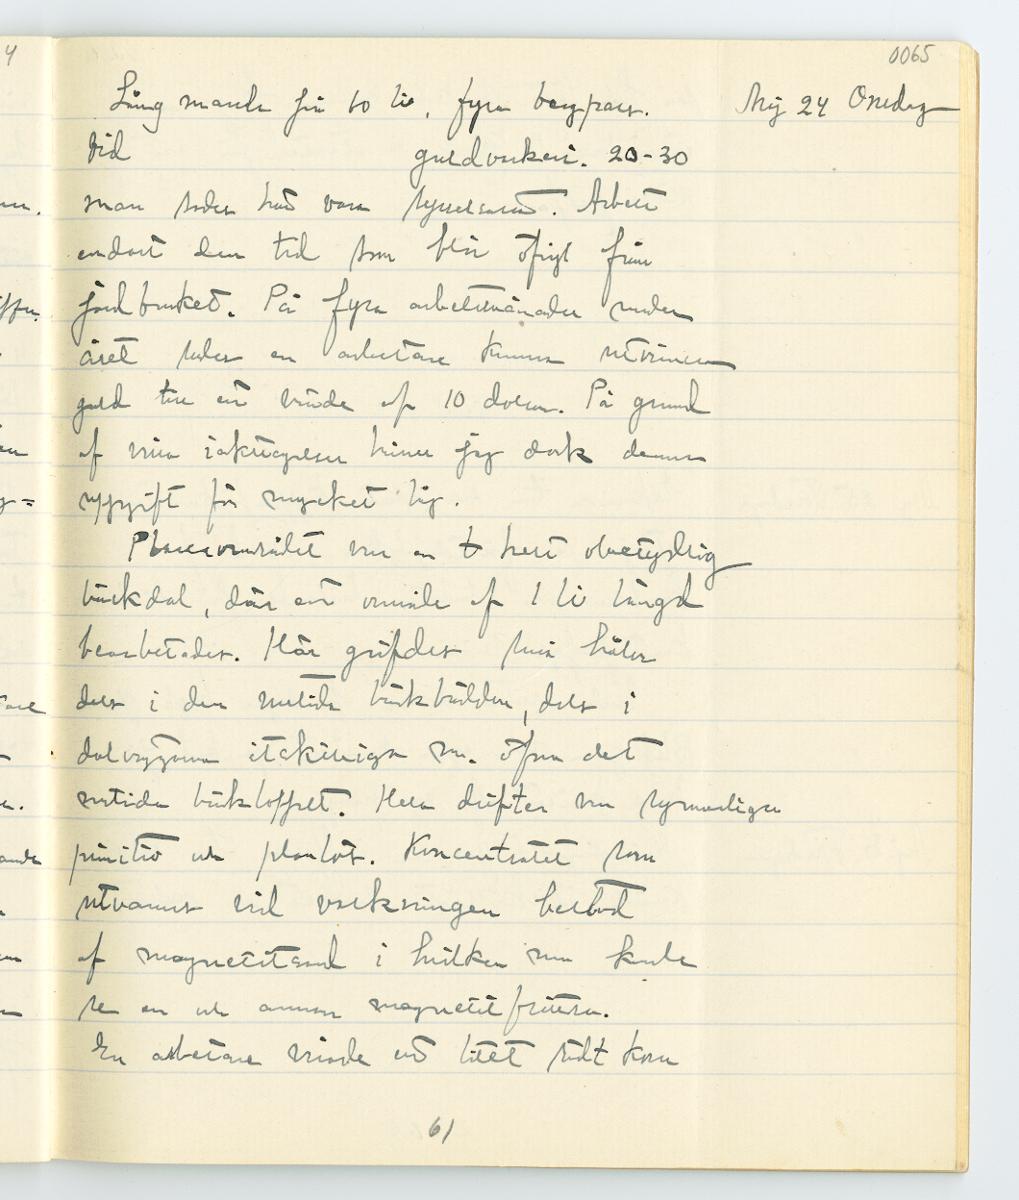 0065
Maj 24 Onsdag
Lång marsch för 60 li, fyra bergpass.
Vid guldvaskeri. 20-30
man sades här vara sysselsatta. Arbeta
endast den tid som blir öfrigt från
jordbruket. På fyra arbetsmånader under
året sades en arbetare kunna utvinna
guld till ett värde af 10 dollar. På grund
af mina iakttagelser finner jag dock denna
uppgift för mycket låg.
Placerområdet var en t helt obetydlig
bäckdal, där ett område af 1 li längd
bearbetades. Här gräfdes små hålor
dels i den nutida bäckbädden, dels i
dalväggarna åtskilliga m. öfver det
nutida bäckloppet. Hela driften var synnerligen
primitiv och planlös. Koncentratet som
utvanns vid vaskningen bestod
af magnetitsand i hvilken man kunde
se en och annan magnetit
En arbetare visade ett litet rödt korn
61